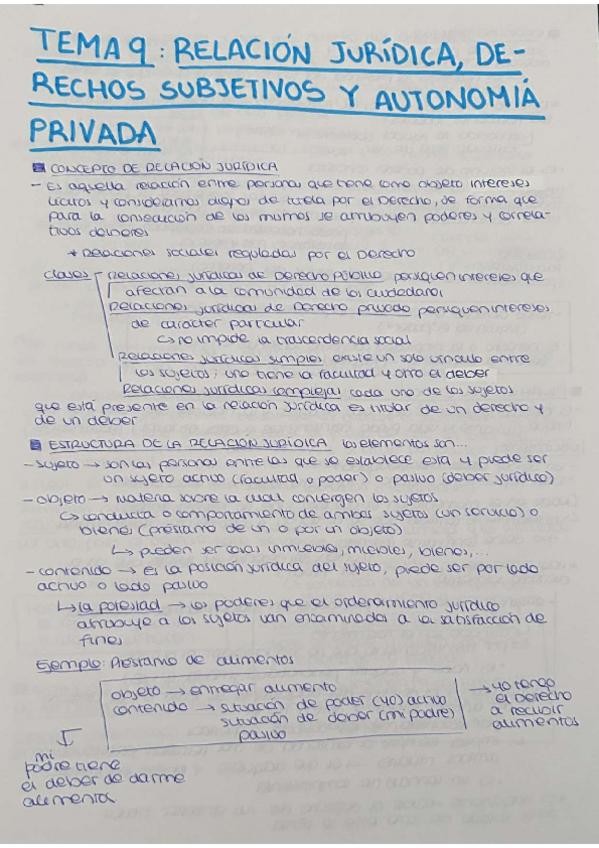 TEMA 9: RELACIÓN JURÍDICA, DE-
RECHOS SUBJETIVOS Y AUTONOMÍA
PRIVADA
CONCEPTO DE RELACIÓN JURÍDICA
- Es aquella relación entre personas que tiene como objeto intereses
lícitos y consideramos dignos de tutela por el Derecho, de forma que
para la consecución de los mismos se atribuyen poderes y correla-
tivos deberes
* Relaciones sociales reguladas por el Derecho
clases Relaciones jurídicas de Derecho Público persiguen intereses que
afectan a la comunidad de los ciudadanos
Relaciones jurídicas de Derecho privado persiguen intereses
de carácter particular
↳ no impide la trascendencia social
Relaciones jurídicas simples existe un solo vínculo entre
los sujetos; uno tiene la facultad y otro el deber
Relaciones jurídicas complejas cada uno de los sujetos
que está presente en la relación jurídica es titular de un derecho y
de un deber
ESTRUCTURA DE LA RELACIÓN JURÍDICA los elementos son...
- sujeto → son las personas entre las que se establece esta y puede ser
un sujeto activo (facultad o poder) o pasivo (deber jurídico)
- objeto → materia sobre la cual convergen los sujetos
↳ conducta o comportamiento de ambos sujetos (un servicio) o
bienes (préstamo de un o por un objeto)
↳ pueden ser cosas inmuebles, muebles, bienes,...
- contenido → es la posición jurídica del sujeto, puede ser por lado
activo o lado pasivo
↳ la potestad → los poderes que el ordenamiento jurídico
atribuye a los sujetos van encaminados a la satisfacción de
fines
Ejemplo: Préstamo de alimentos
objeto → entregar alimento
contenido → situación de poder (yo) activo
situación de deber (mi padre)
pasivo
→ yo tengo
el derecho
a recibir
alimentos
mi
padre tiene
el deber de darme
alimentos